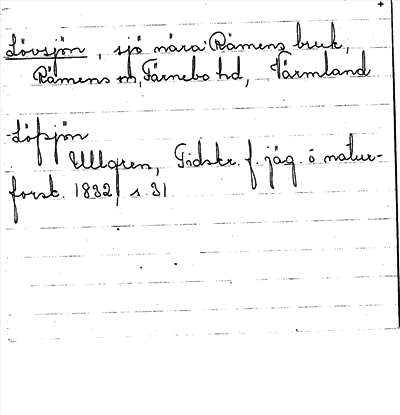 Lövsjön, sjö nära Rämens bruk,
Rämens sn, Färnebo hd, Värmland
Löfsjön
Ullgren, Tidskr. f. jäg. o natur-
forsk. 1832, s. 31